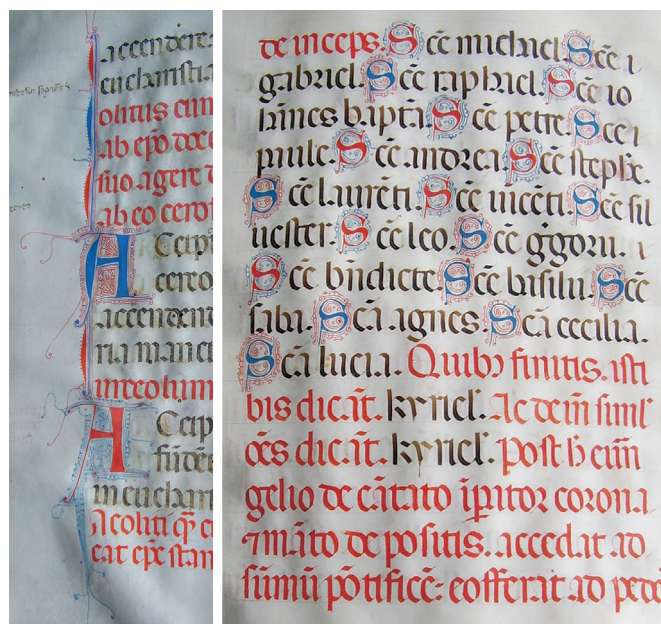 accendere
eucharisti
olitus cum
ab ep̄o doce
suo agere
ab eo cerof
Accip
cerco
accenden
ria manci
urceolum
Accip
fūdē
in euchar
Acoliti q̄
cat ep̄c stan
de inceps. Scē michael. Scē
gabriel. Scē raphael. Scē io
hānes bapta Scē petre. Scē
paule. Scē andrea Scē steph̄e.
Scē laurēti. Scē uicēti. Scē sil
uester. Scē leo. Scē ggorii.
Scē bn̄dicte. Scē basilii. Scē
saba. Scā agnes. Scā cecilia.
Scā lucia. Quibꝫ finitis. isti
bis dicāt. kyriel'. Ac dem̄ simil'
oēs dicāt. kyriel'. Post h̄ euā
gelio decātato īp̄ator corona
⁊ māto depositis. accedat ad
sūmū pōtificē: ⁊ offerat ad pedes